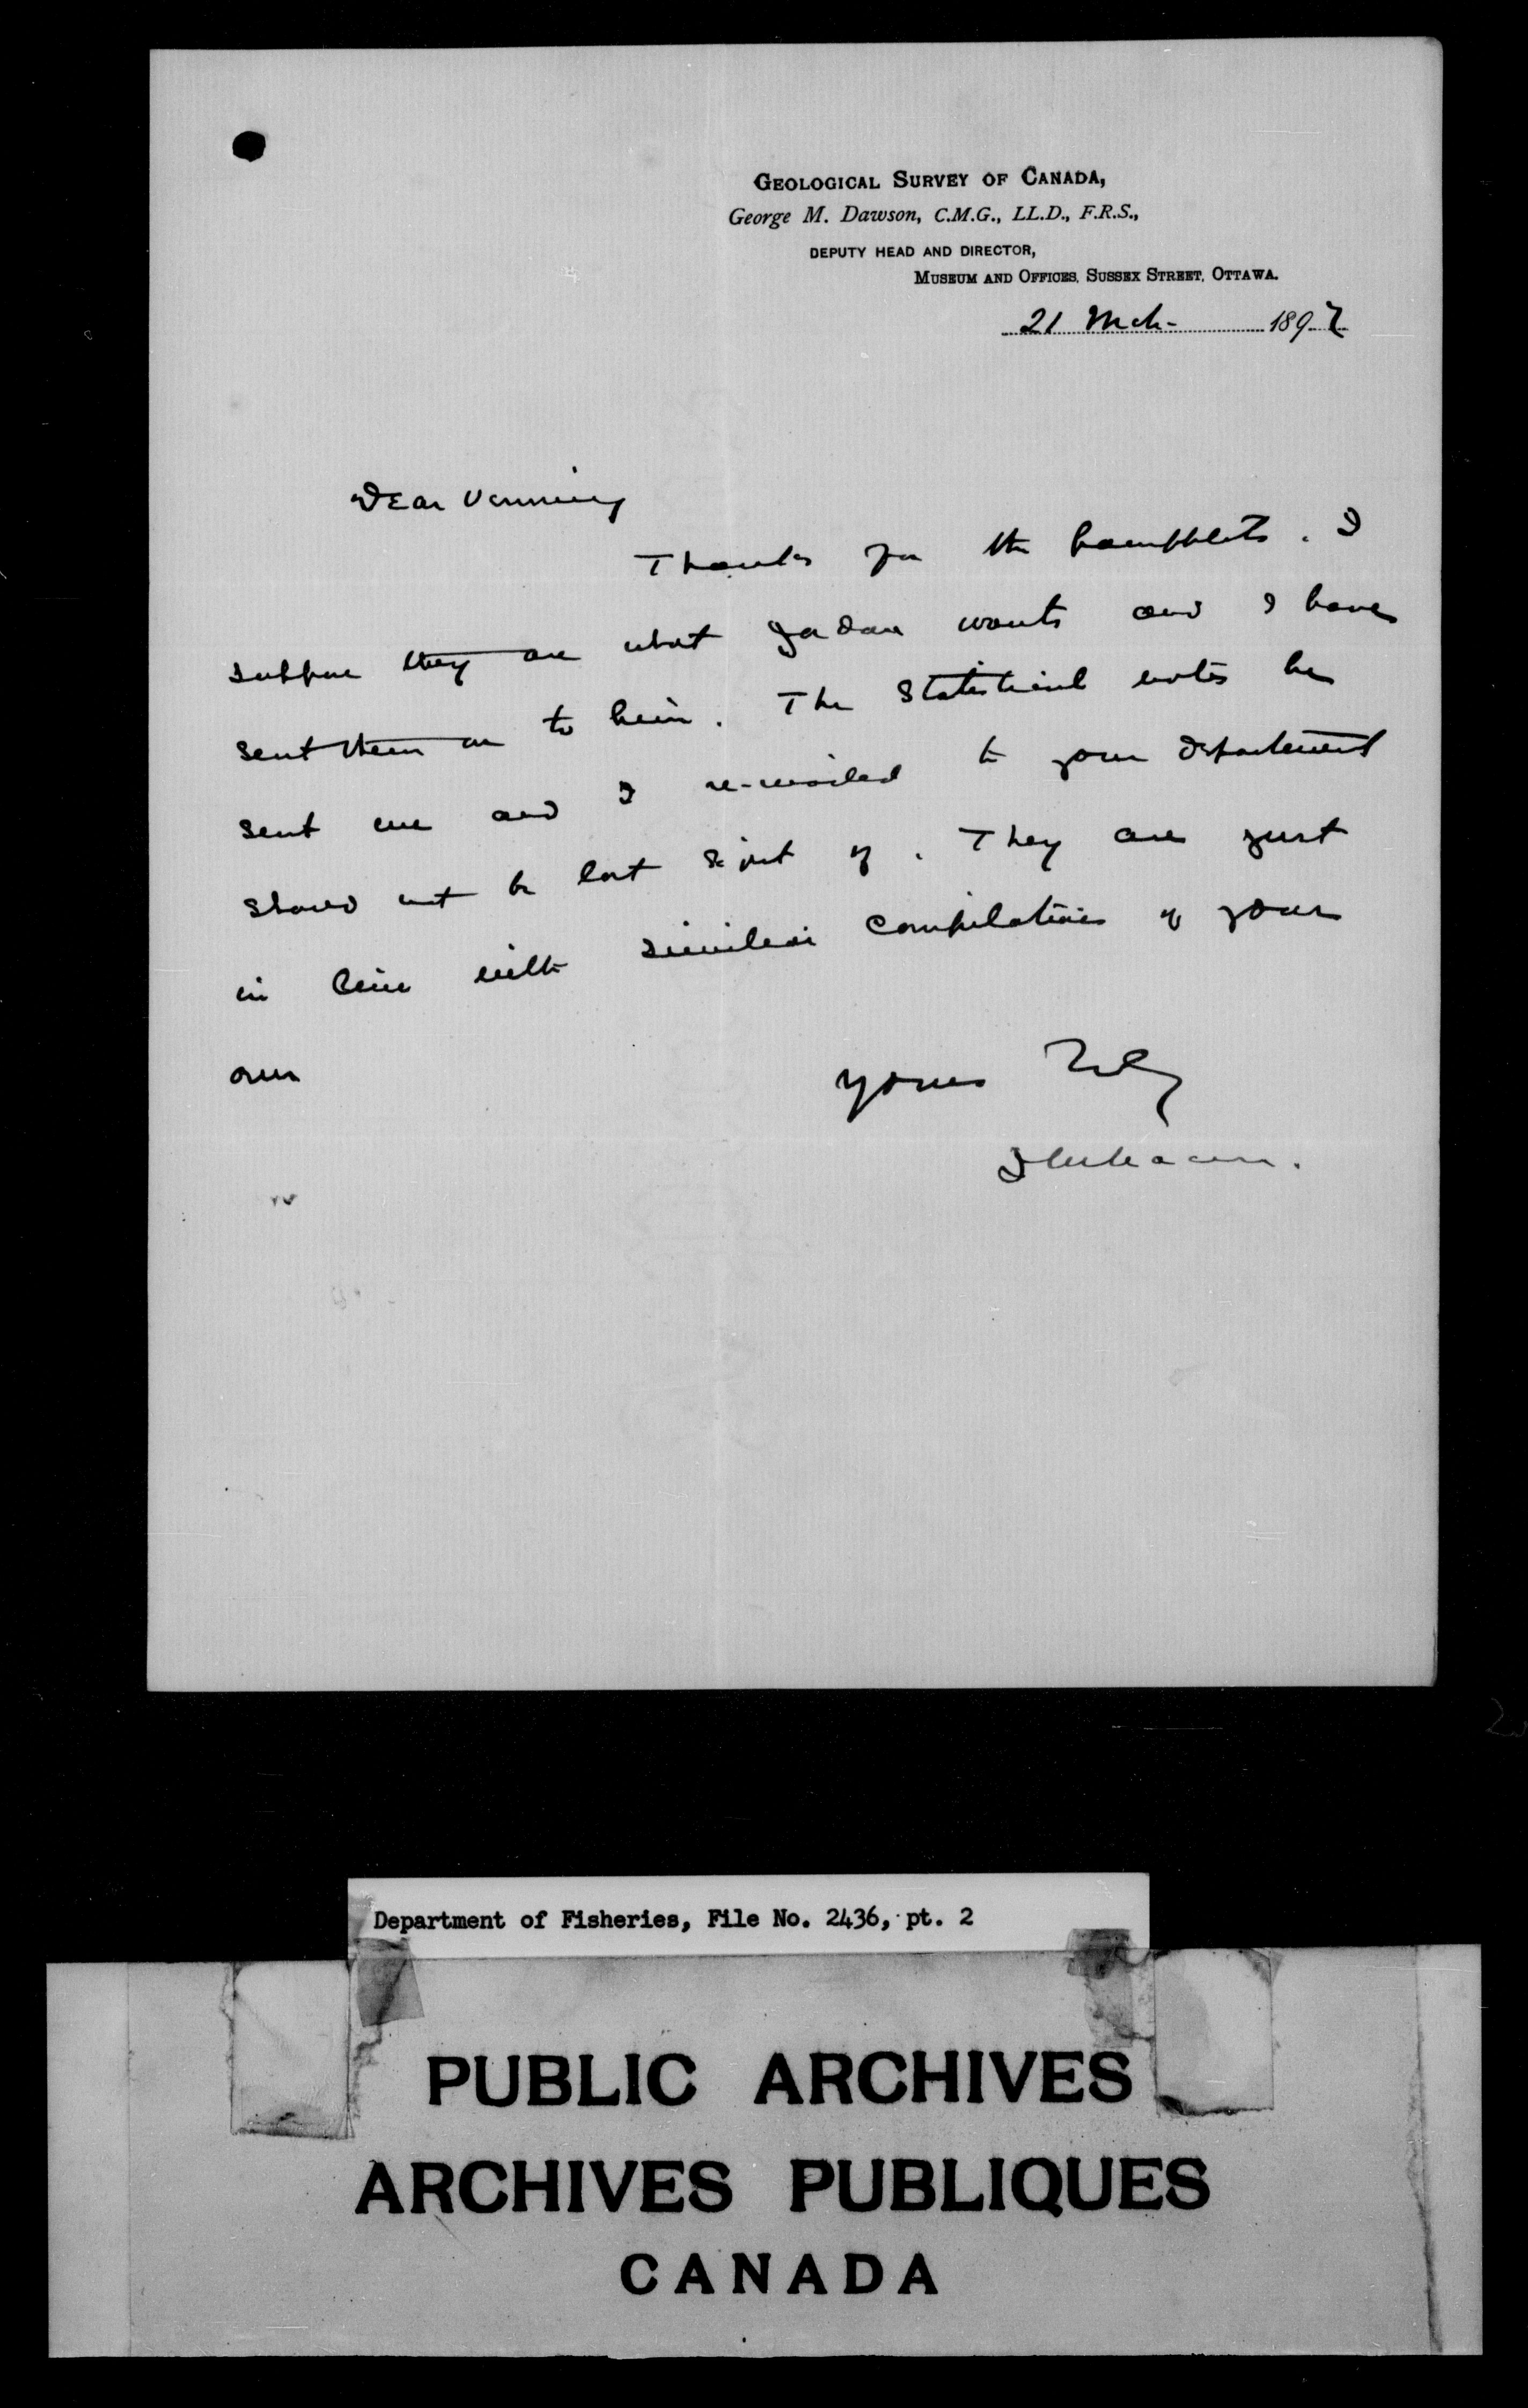 GEOLOGICAL SURVEY OF CANADA,
George M. Dawson, C.M.G., LL.D., F.R.S.,
DEPUTY HEAD AND DIRECTOR,
MUSEUM AND OFFICES, SUSSEX STREET, OTTAWA.
21 Mch- 1897
Dear Venning
Thanks for the pamphlets. I
suppose they are what Jordan wants and I have
sent them on to him. The Statistical notes he
sent me and I re-mailed to your department
should not be lost sight of. They are just
in line with similar compilations of your
own
yours
Department of Fisheries, File No. 2436, pt. 2
PUBLIC ARCHIVES
ARCHIVES PUBLIQUES
CANADA